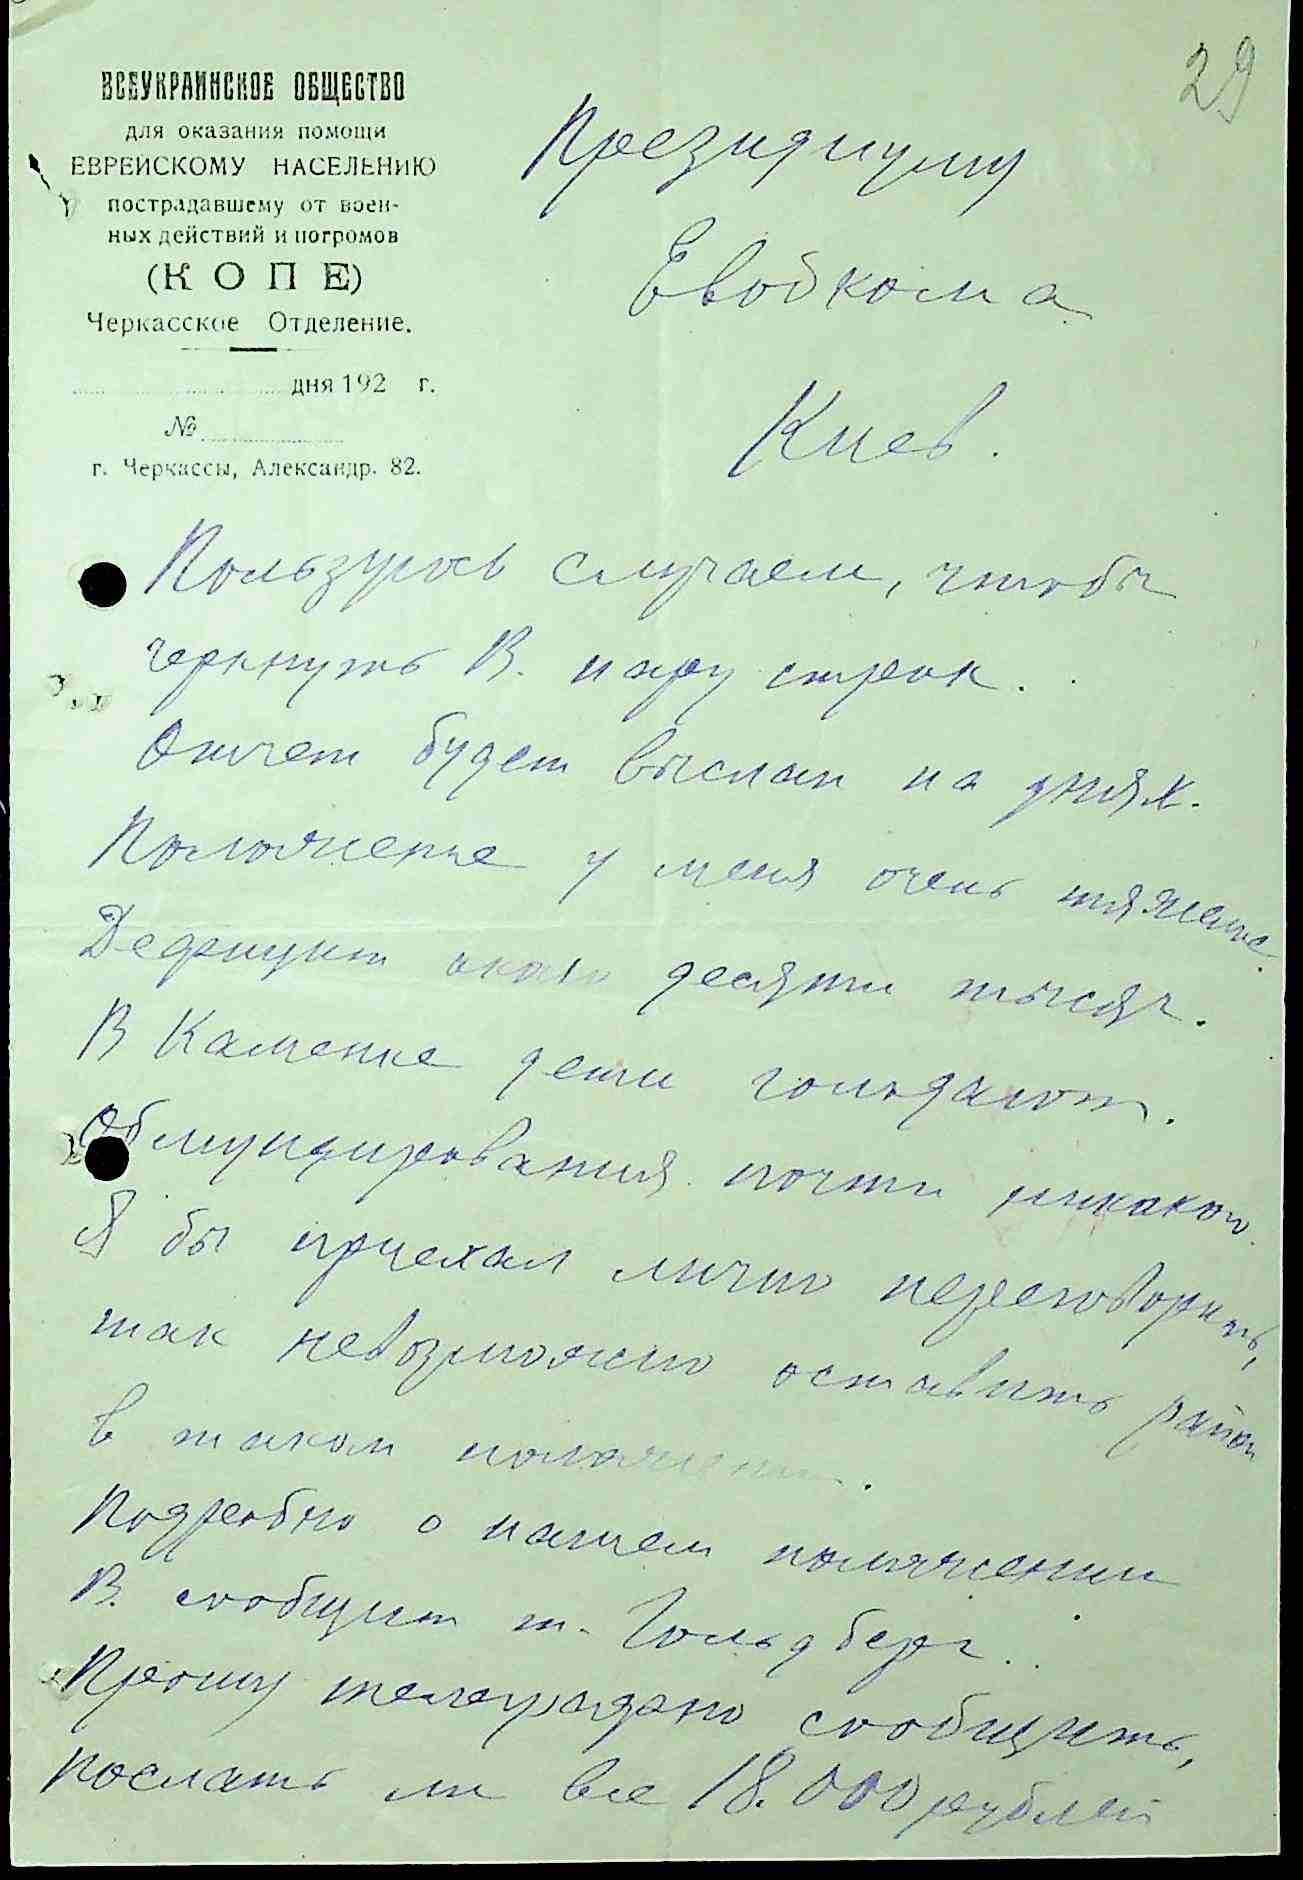 29
ВСЕУКРАИНСКОЕ ОБЩЕСТВО
для оказания помощи
ЕВРЕЙСКОМУ НАСЕЛЕНИЮ
пострадавшему от воен-
ных действий и погромов
(КОПЕ)
Черкасское Отделение.
дня 192 г.
№
г. Черкассы, Александр. 82.
Президиуму
Евобкома
Киев.
Пользуюсь случаем, чтобы
черкнуть В. пару строк.
Отчет будет выслан на днях.
Положение у меня очень тяжелое.
Дефицит около десяти тысяч.
В Каменке дети голодают.
Обмундирования почти никакого.
Я бы приехал лично переговорить,
так невозможно оставить район
в таком положении.
Подробно о нашем положении
В. сообщит т. Гольдберг.
Прошу телеграфно сообщить,
послать ли все 18.000 рублей